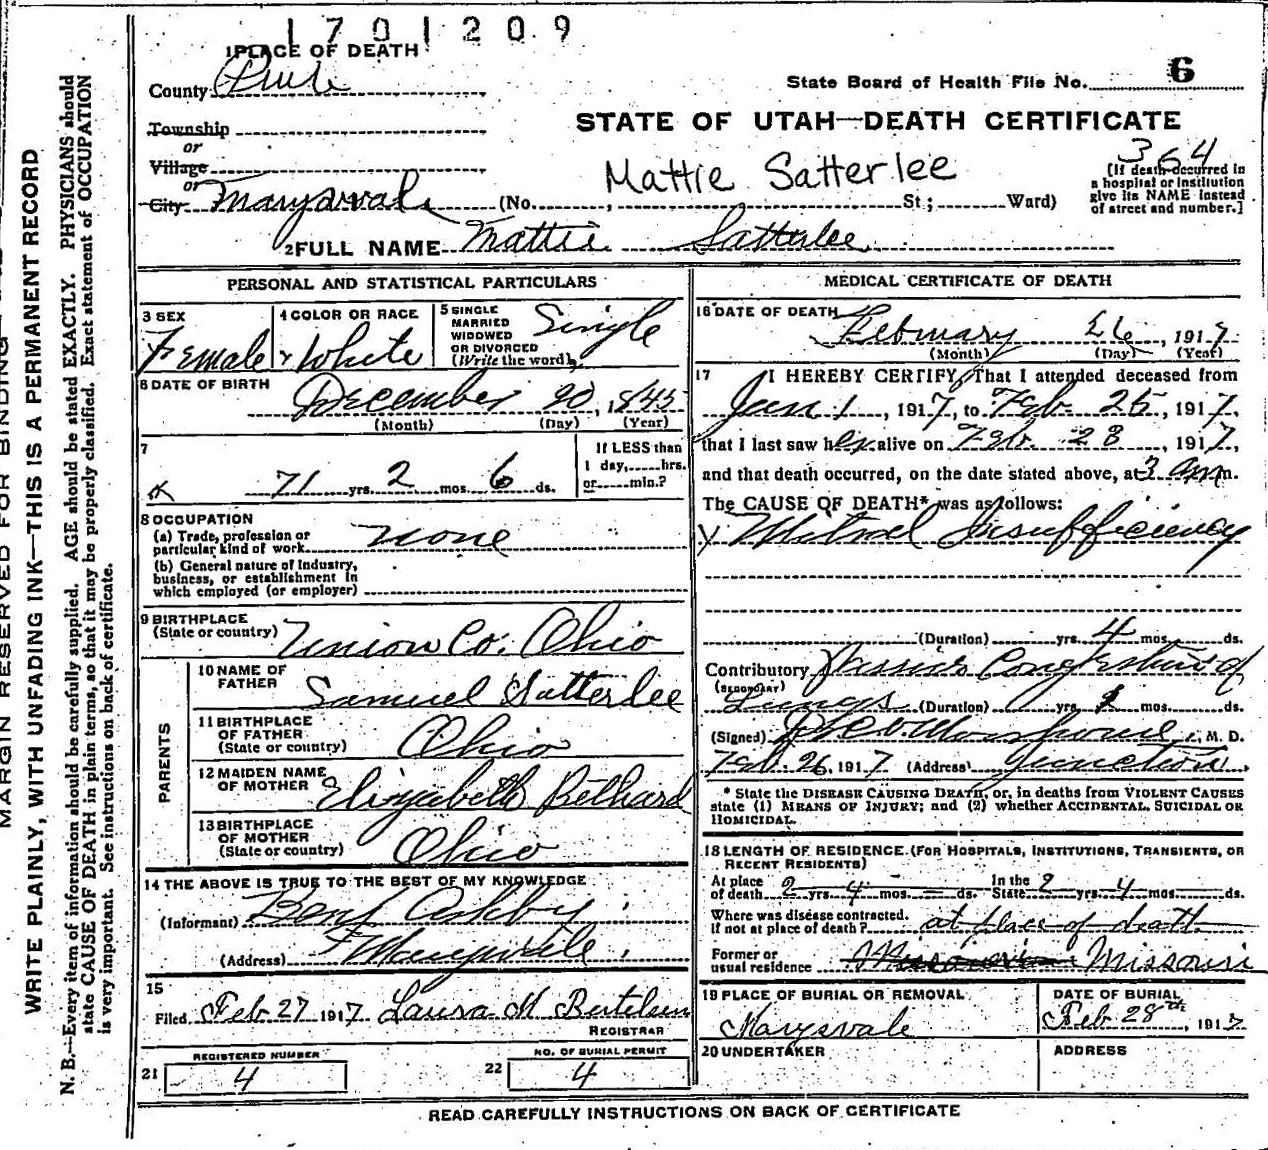 1701209
1 PLACE OF DEATH
County Piute
State Board of Health File No. 6
Township
or
Village
or
City Marysvale
STATE OF UTAH—DEATH CERTIFICATE
Mattie Satterlee
364
(No. , St; Ward)
[If death occurred in
a hospital or institution
give its NAME instead
of street and number.]
2 FULL NAME Mattie Satterlee
PERSONAL AND STATISTICAL PARTICULARS
3 SEX
Female
4 COLOR OR RACE
White
5 SINGLE
MARRIED
WIDOWED
OR DIVORCED
(Write the word)
Single
6 DATE OF BIRTH
December 20, 1845
(Month) (Day) (Year)
7
71 yrs. 2 mos. 6 ds.
If LESS than
1 day, hrs.
or min.?
8 OCCUPATION
(a) Trade, profession or
particular kind of work none
(b) General nature of Industry,
business, or establishment in
which employed (or employer)
9 BIRTHPLACE
(State or country) Union Co. Ohio
PARENTS
10 NAME OF
FATHER Samuel Satterlee
11 BIRTHPLACE
OF FATHER
(State or country) Ohio
12 MAIDEN NAME
OF MOTHER Elizabeth Bethard
13 BIRTHPLACE
OF MOTHER
(State or country) Ohio
14 THE ABOVE IS TRUE TO THE BEST OF MY KNOWLEDGE
(Informant) Benj Ashby
(Address) Marysvale
15
Filed Feb 27 1917 Laura M Bertelsen
REGISTRAR
REGISTERED NUMBER
21 4
NO. OF BURIAL PERMIT
22 4
MEDICAL CERTIFICATE OF DEATH
16 DATE OF DEATH
February 26, 1917
(Month) (Day) (Year)
17 I HEREBY CERTIFY, That I attended deceased from
Jan 1, 1917, to Feb. 25, 1917,
that I last saw her alive on Feb. 23, 1917,
and that death occurred, on the date stated above, at 3 am m.
The CAUSE OF DEATH* was as follows:
Mitral Insufficiency
(Duration) yrs. 4 mos. ds.
Contributory Passive Congestion of
(SECONDARY)
Lungs (Duration) yrs. mos. ds.
(Signed) M. D.
Feb. 26, 1917 (Address) Junction
* State the DISEASE CAUSING DEATH, or, in deaths from VIOLENT CAUSES
state (1) MEANS OF INJURY; and (2) whether ACCIDENTAL, SUICIDAL OR
HOMICIDAL.
18 LENGTH OF RESIDENCE (FOR HOSPITALS, INSTITUTIONS, TRANSIENTS, OR
RECENT RESIDENTS)
At place
of death 2 yrs. 4 mos. – ds.
In the
State 2 yrs. 4 mos. ds.
Where was disease contracted,
if not at place of death? at place of death
Former or
usual residence Missouri
19 PLACE OF BURIAL OR REMOVAL
Marysvale
DATE OF BURIAL
Feb 28th, 1917
20 UNDERTAKER
ADDRESS
READ CAREFULLY INSTRUCTIONS ON BACK OF CERTIFICATE
MARGIN RESERVED FOR BINDING
WRITE PLAINLY, WITH UNFADING INK—THIS IS A PERMANENT RECORD
N. B.—Every item of information should be carefully supplied. AGE should be stated EXACTLY. PHYSICIANS should
state CAUSE OF DEATH in plain terms, so that it may be properly classified. Exact statement of OCCUPATION
is very important. See instructions on back of certificate.